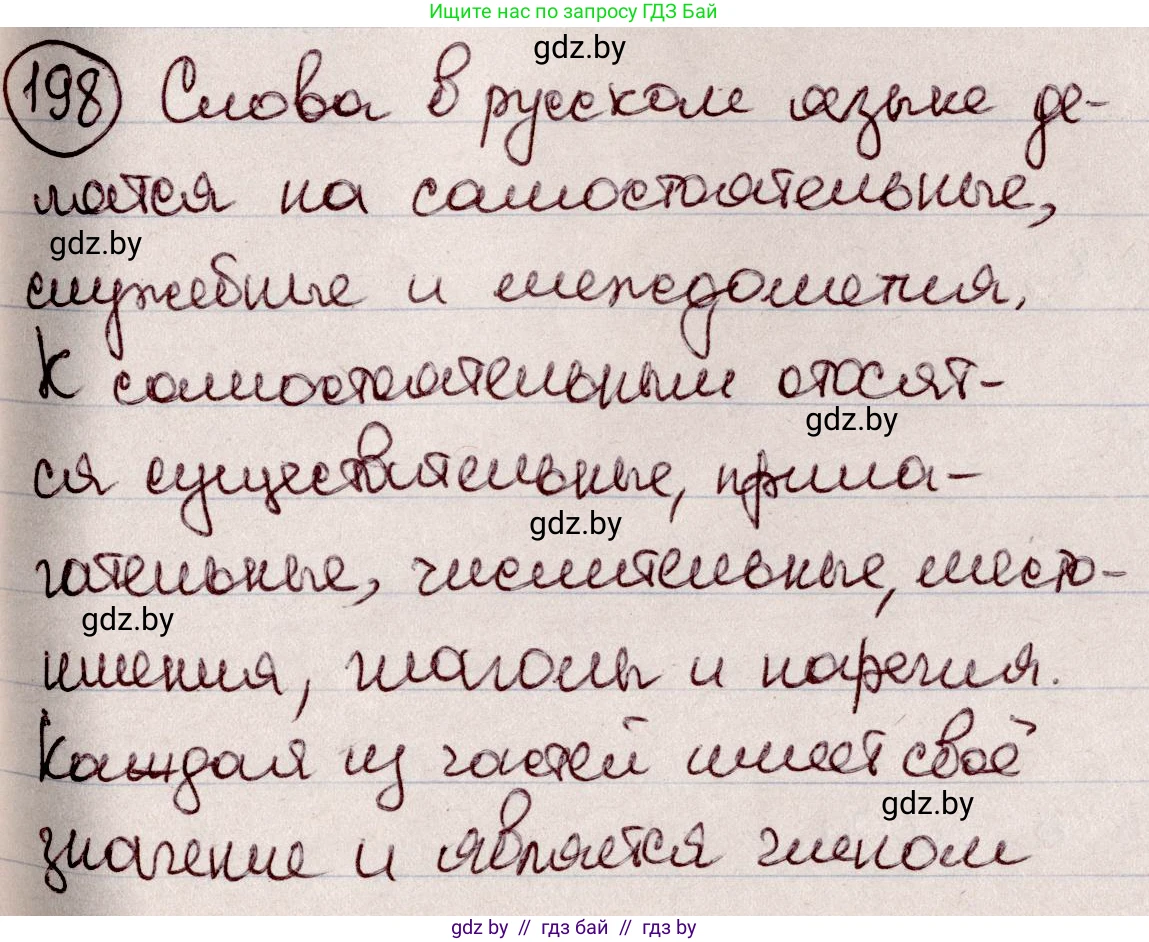 Ищите нас по запросу ГДЗ Бай
gdz.by
198 Слова в русском языке де-
лятся на самостоятельные,
gdz.by
служебные и междометия.
К самостоятельным отосят-
gdz.by
ся существительные, прила-
gdz.by
гательные, числительные, место-
gdz.by
имения, глаголы и наречия.
Каждая из частей имеет своё
gdz.by
значение и является членом
gdz by // гдз бай // гдз by